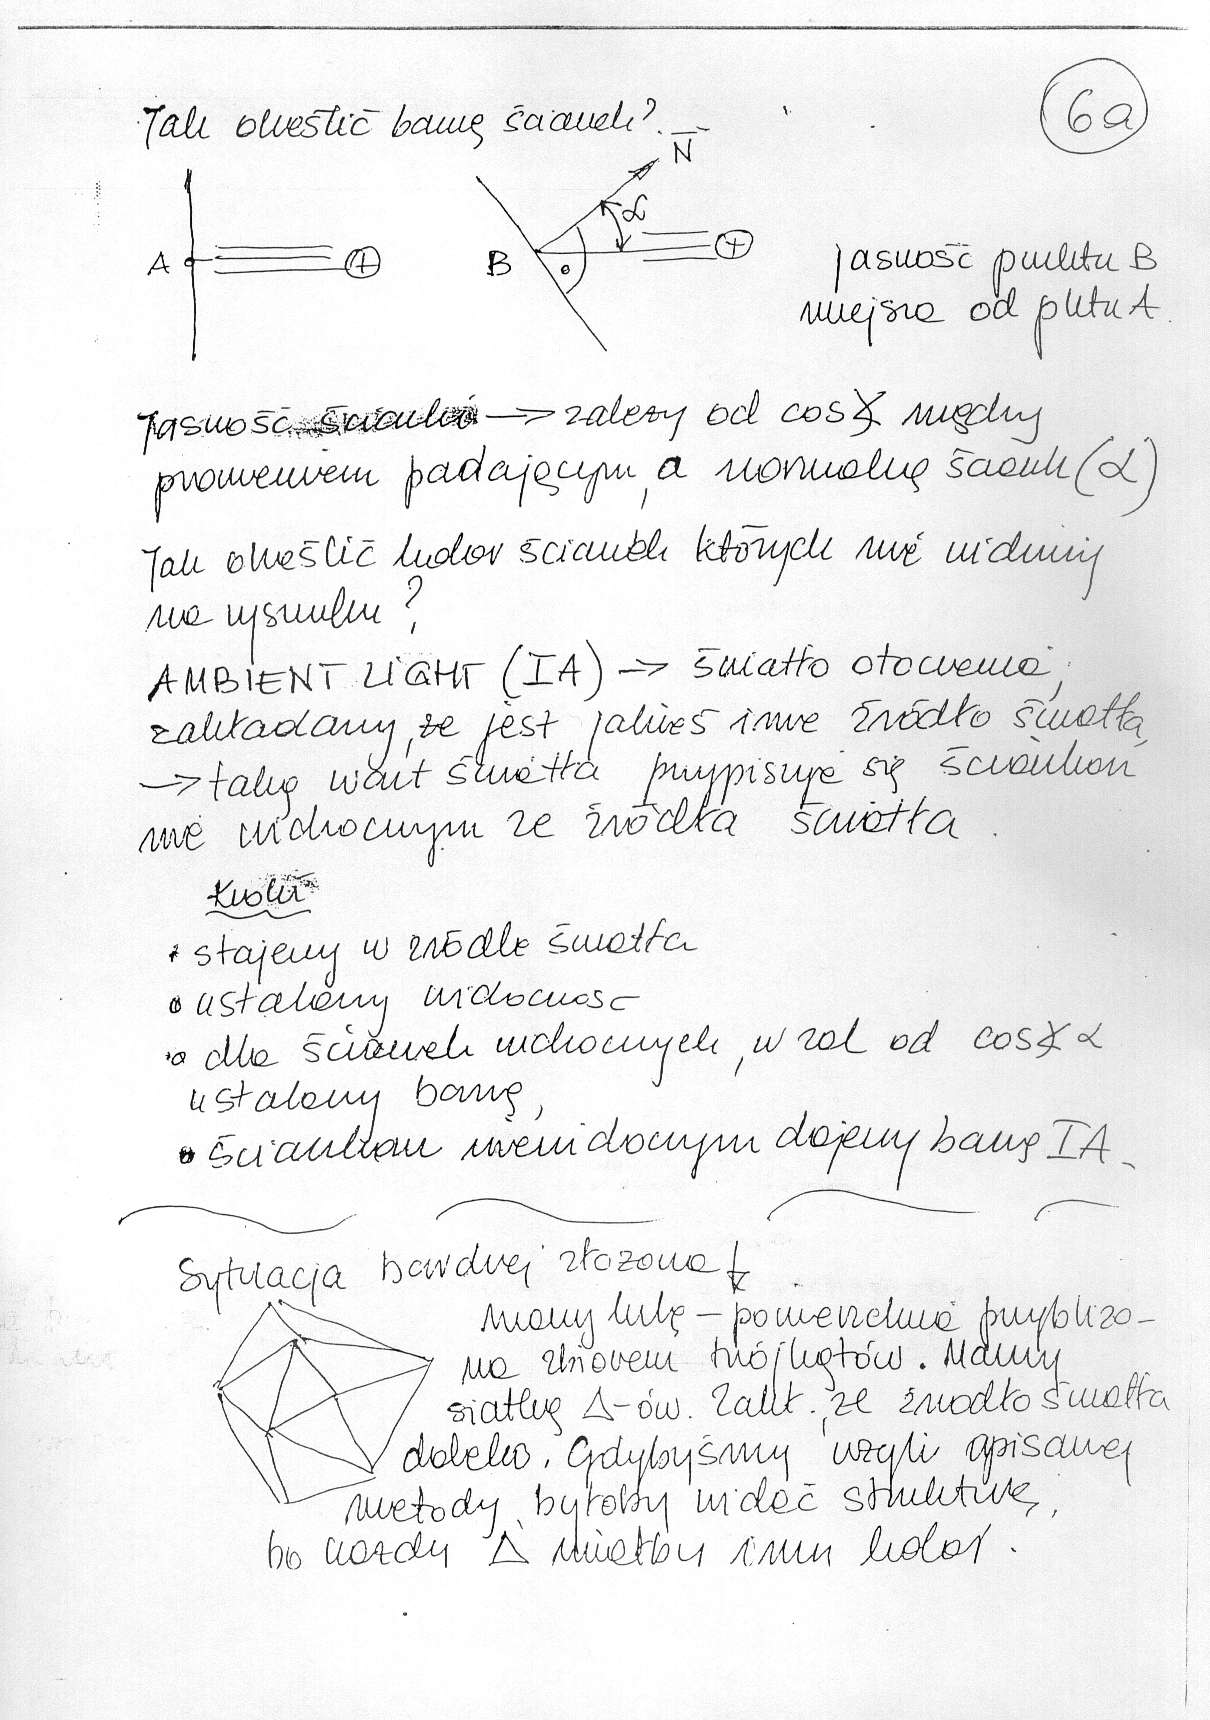 6a
Jak określić barwę ścianek?
N
α
A
B
jasność punktu B
mniejsza od pktu A.
Jasność ścianki → zależy od cos∢ między
promieniem padającym, a normalną ścianki (α)
Jak określić kolor ścianek których nie widzimy
na rysunku?
AMBIENT LIGHT (IA) → światło otoczenia,
zakładamy, że jest jakieś inne źródło światła,
→ taką wart światła przypisuje się ściankom
nie widocznym ze źródła światła.
Kroki
• stajemy w źródle światła
• ustalamy widoczność
• dla ścianek widocznych, w zal od cos∢α
ustalamy barwę,
• ściankom niewidocznym dajemy barwę IA.
Sytuacja bardziej złożona
mamy kulę – powierzchnia przybliżo-
na zbiorem trójkątów. Mamy
siatkę △-ów. Zakł., że źródło światła
daleko. Gdybyśmy użyli opisanej
metody byłoby widać strukturę,
bo każdy △ miałby inny kolor.